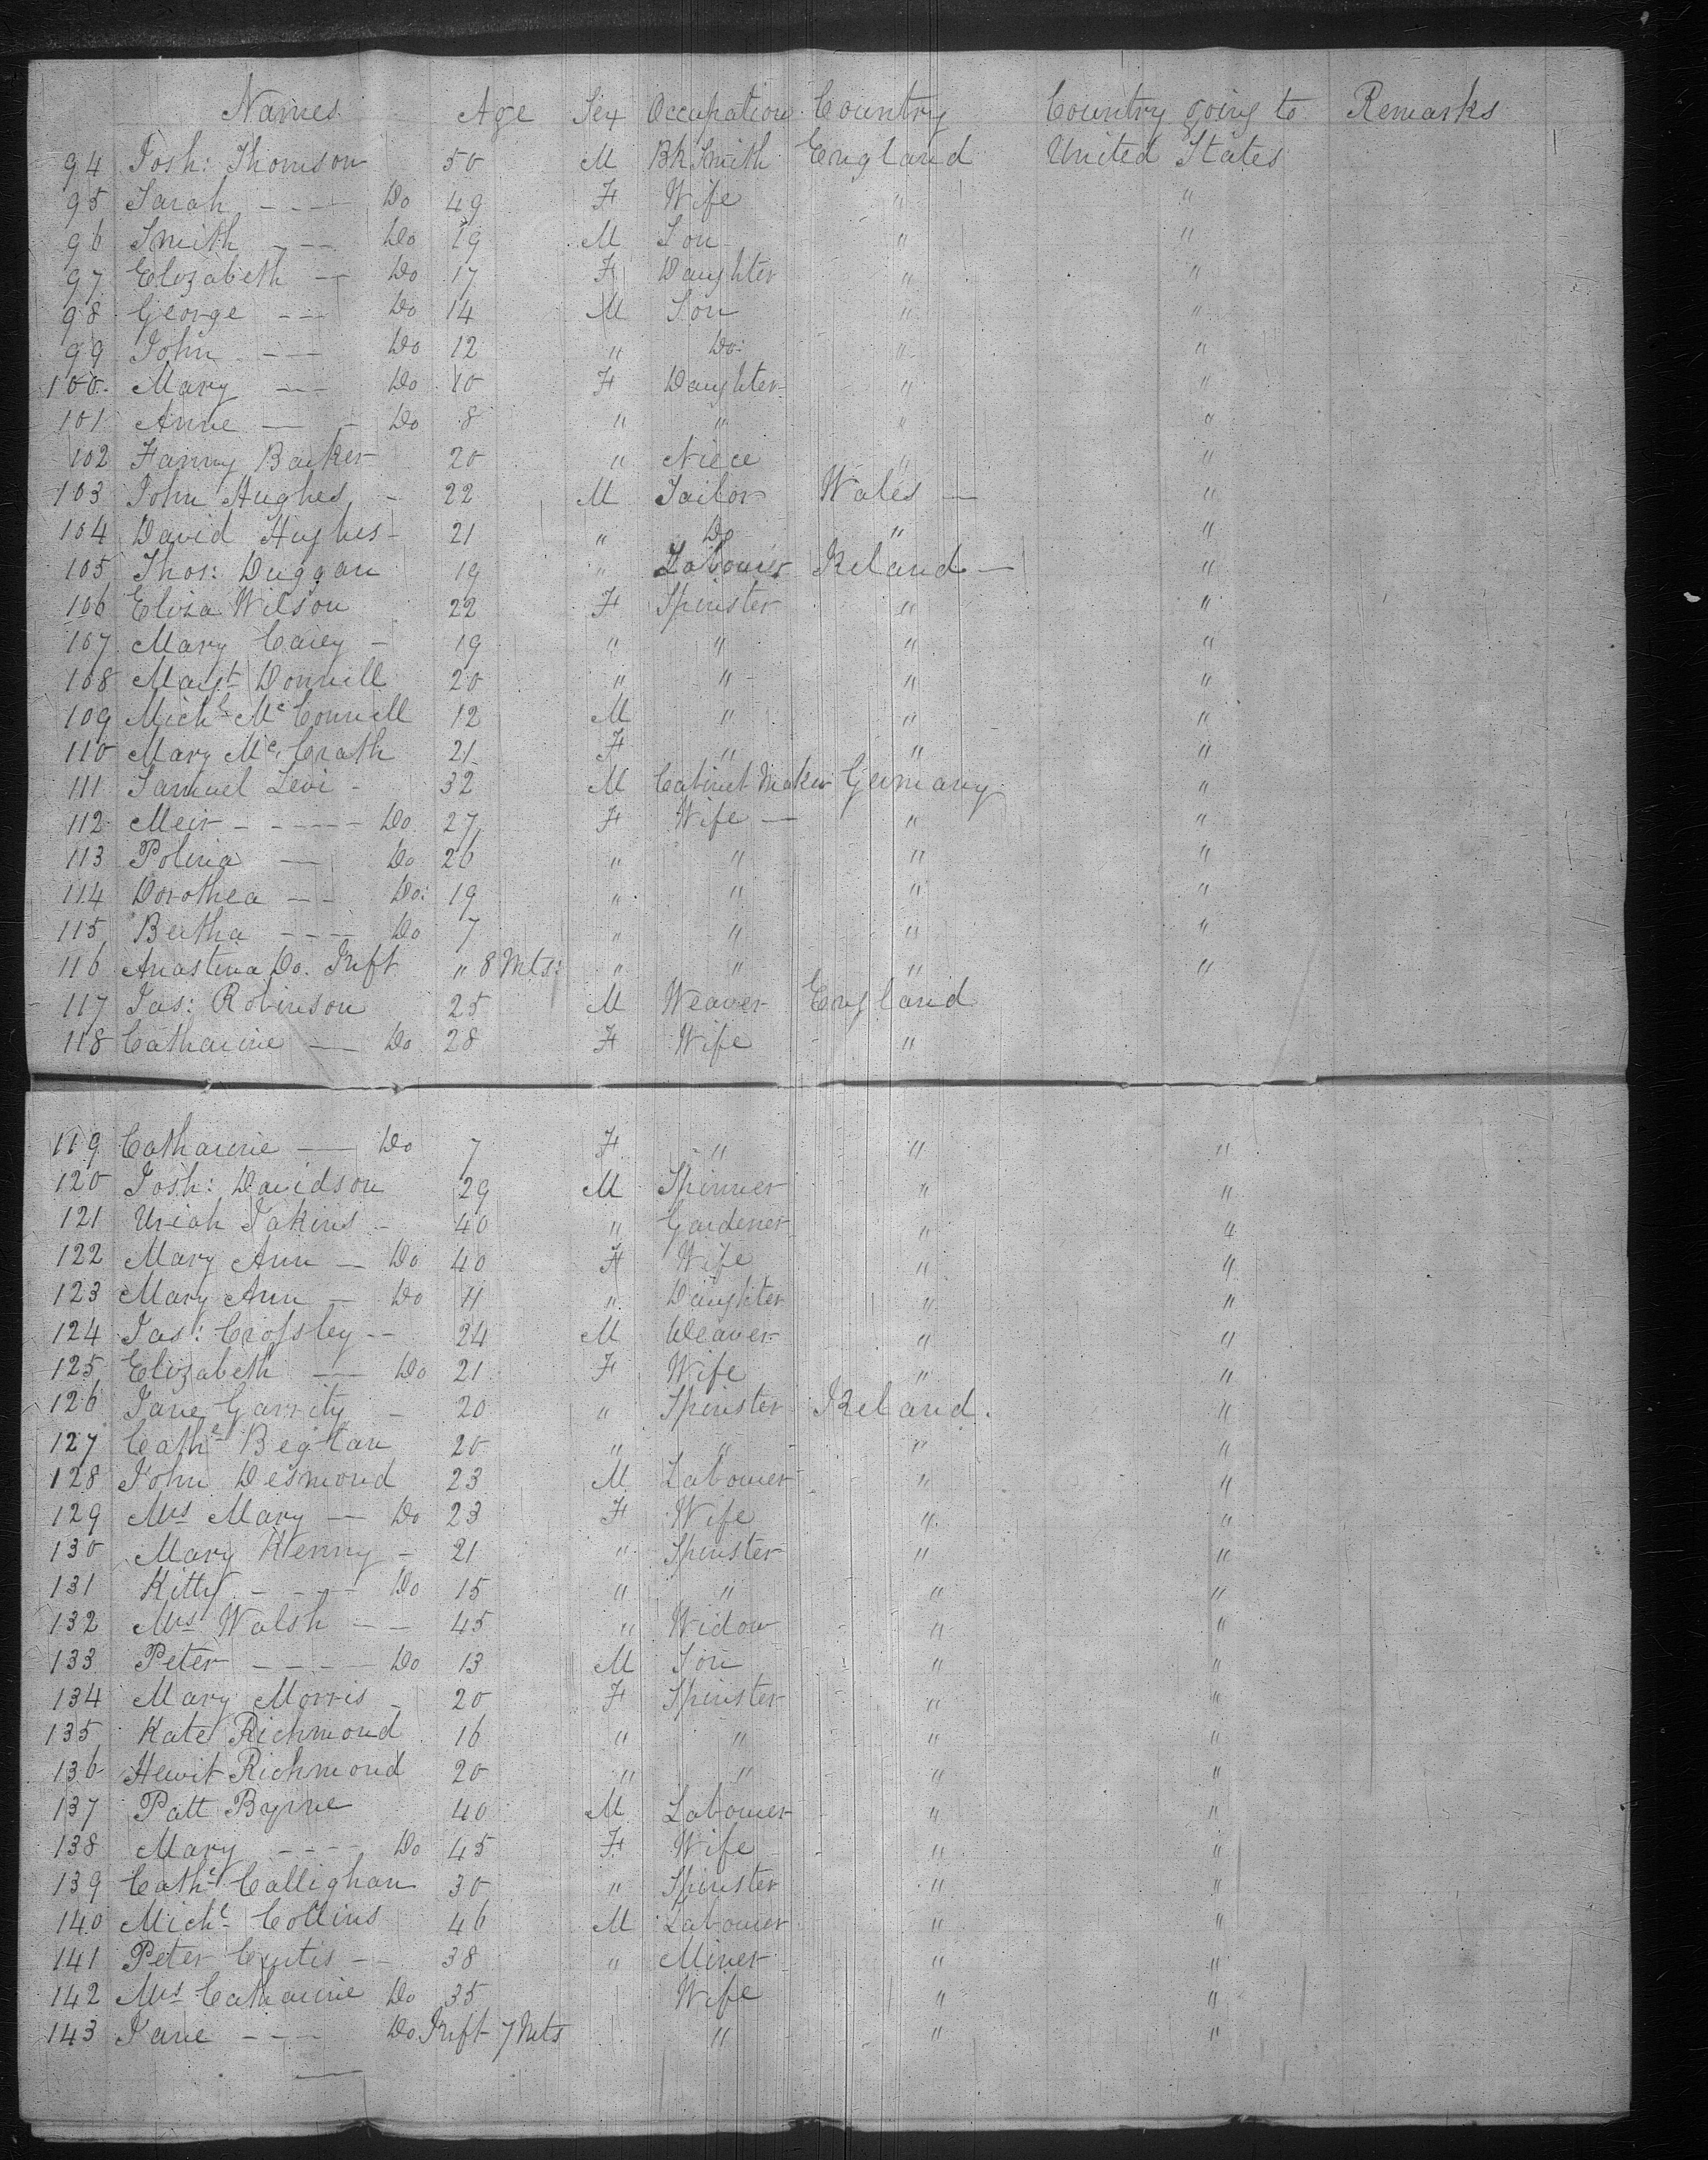 Names Age Sex Occupation Country Country going to Remarks
94 Josh: Thomson 50 M Bk Smith England United States
95 Sarah - - - - Do 49 F Wife " "
96 Smith - - - Do 19 M Son " "
97 Elizabeth - - Do 17 F Daughter " "
98 George - - - Do 14 M Son " "
99 John - - - Do 12 " Do: " "
100 Mary - - - Do 10 F Daughter " "
101 Anne - - Do 8 " " " "
102 Fanny Barker 20 " Niece " "
103 John Hughes - 22 M Tailor Wales - "
104 David Hughes - 21 " Do " "
105 Thos: Duggan 19 " Labourer Ireland - "
106 Eliza Wilson 22 F Spinster " "
107 Mary Carey - 19 " " " "
108 Margt Donnell 20 " " " "
109 Michl McConnell 12 M " " "
110 Mary McCrath 21 F " " "
111 Samuel Levi - 32 M Cabinet Maker Germany "
112 Meir - - - - - Do 27 F Wife - " "
113 Polina - Do 26 " " " "
114 Dorothea - - Do: 19 " " " "
115 Bertha - - - - Do 7 " " " "
116 Do. Inft " 8 Mts: " " " "
117 Jas: Robinson 25 M Weaver England
118 Catharine - Do 28 F Wife "
119 Catharine - Do 7 F " " "
120 Josh: Davidson 29 M Spinner " "
121 Uriah Jakins - 40 " Gardener " "
122 Mary Ann - Do 40 F Wife " "
123 Mary Ann - Do 11 " Daughter " "
124 Jas: Crossley - - 24 M Weaver " "
125 Elizabeth - Do 21 F Wife " "
126 Jane Garrity - 20 " Spinster Ireland. "
127 Cathe 20 " " " "
128 John Desmond 23 M Labourer " "
129 Mrs Mary - Do 23 F Wife " "
130 Mary Kenny - 21 " Spinster " "
131 Kitty - - - - Do 15 " " " "
132 Mrs Walsh - - 45 " Widow " "
133 Peter - - - - Do 13 M Son " "
134 Mary Morris - 20 F Spinster " "
135 Kate Richmond 16 " " " "
136 Hewit Richmond 20 " " " "
137 Patt Byrne 40 M Labourer " "
138 Mary - - - - Do 45 F Wife " "
139 Cathe Callighan 30 " Spinster " "
140 Michl Collins 46 M Labourer " "
141 Peter Curtis - - 38 " Miner " "
142 Mrs Catharine Do 35 Wife " "
143 Jane - - - Do Inft 7 Mts " " "